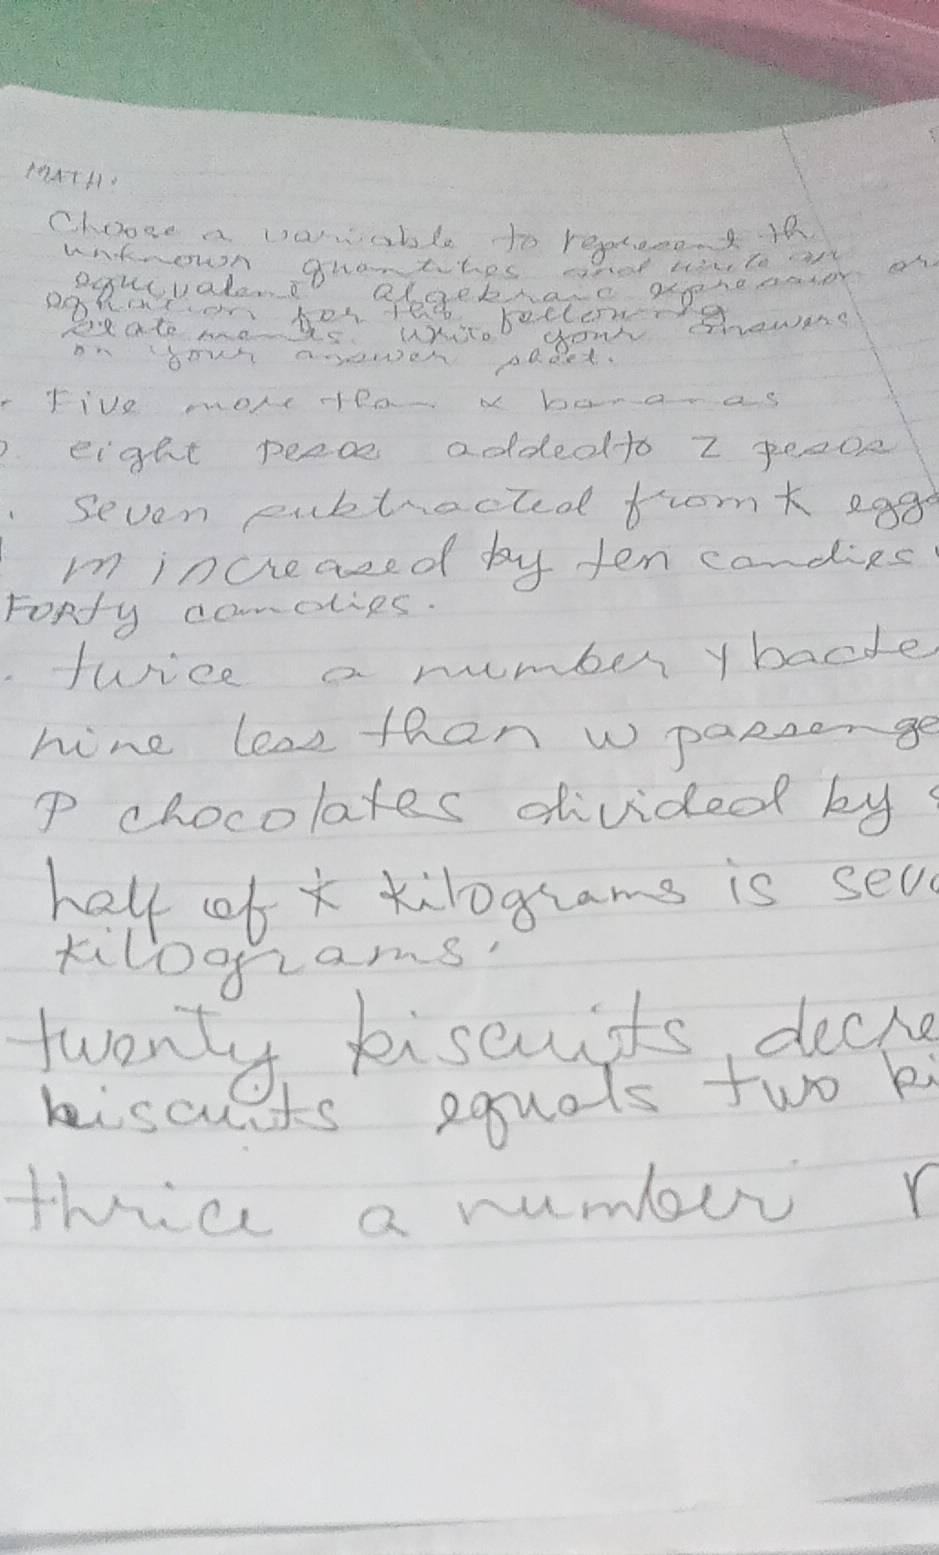 MATH.
Choose a variable to represent th
unknown quantities and write an
equivalent algebraic expression or
equation for the following
statements. Write your answers
on your answer sheet.
Five more than x bananas
eight pesos added to z pesos
seven subtracted from k eggs
m increased by ten candies
Forty candies.
twice a number y bacte
nine less than w passenge
P chocolates divided by
half of k kilograms is seve
kilograms.
twenty biscuits, decre
biscuits equals two bi
thrice a number r